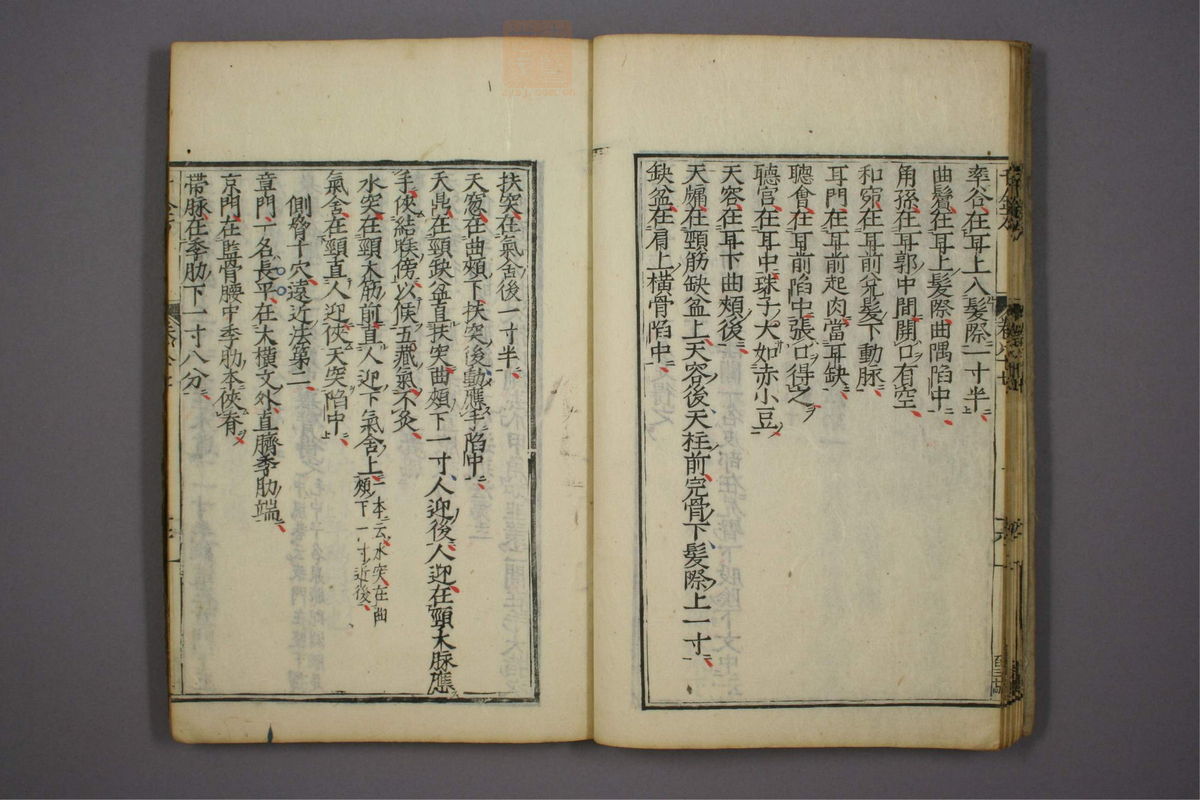 率谷在耳上入髮際一寸半
曲鬢在耳上髮際曲隅陷中
角孫在耳郭中間開口有空
和窌在耳前兌髮下動脉
耳門在耳前起肉當耳缺
聽會在耳前陷中張口得之
聽宮在耳中珠子大如赤小豆
天容在耳下曲頰後
天牖在頸筋缺盆上天容後天柱前完骨下髮際上一寸
缺盆在肩上橫骨陷中
扶突在氣舍後一寸半
天窓在曲頰下扶突後動應手陷中
天鼎在頸缺盆直扶突曲頰下一寸人迎後人迎在頸大脉應
手俠結喉傍以候五藏氣不灸
水突在頸大筋前直人迎下氣舍上一本云水突在曲頰下一寸近後
氣舍在頸直人迎俠天突陷中
側脅十穴遠近法第二
章門一名長平在大橫文外直臍季肋端
京門在監骨腰中季肋本俠脊
帶脉在季肋下一寸八分